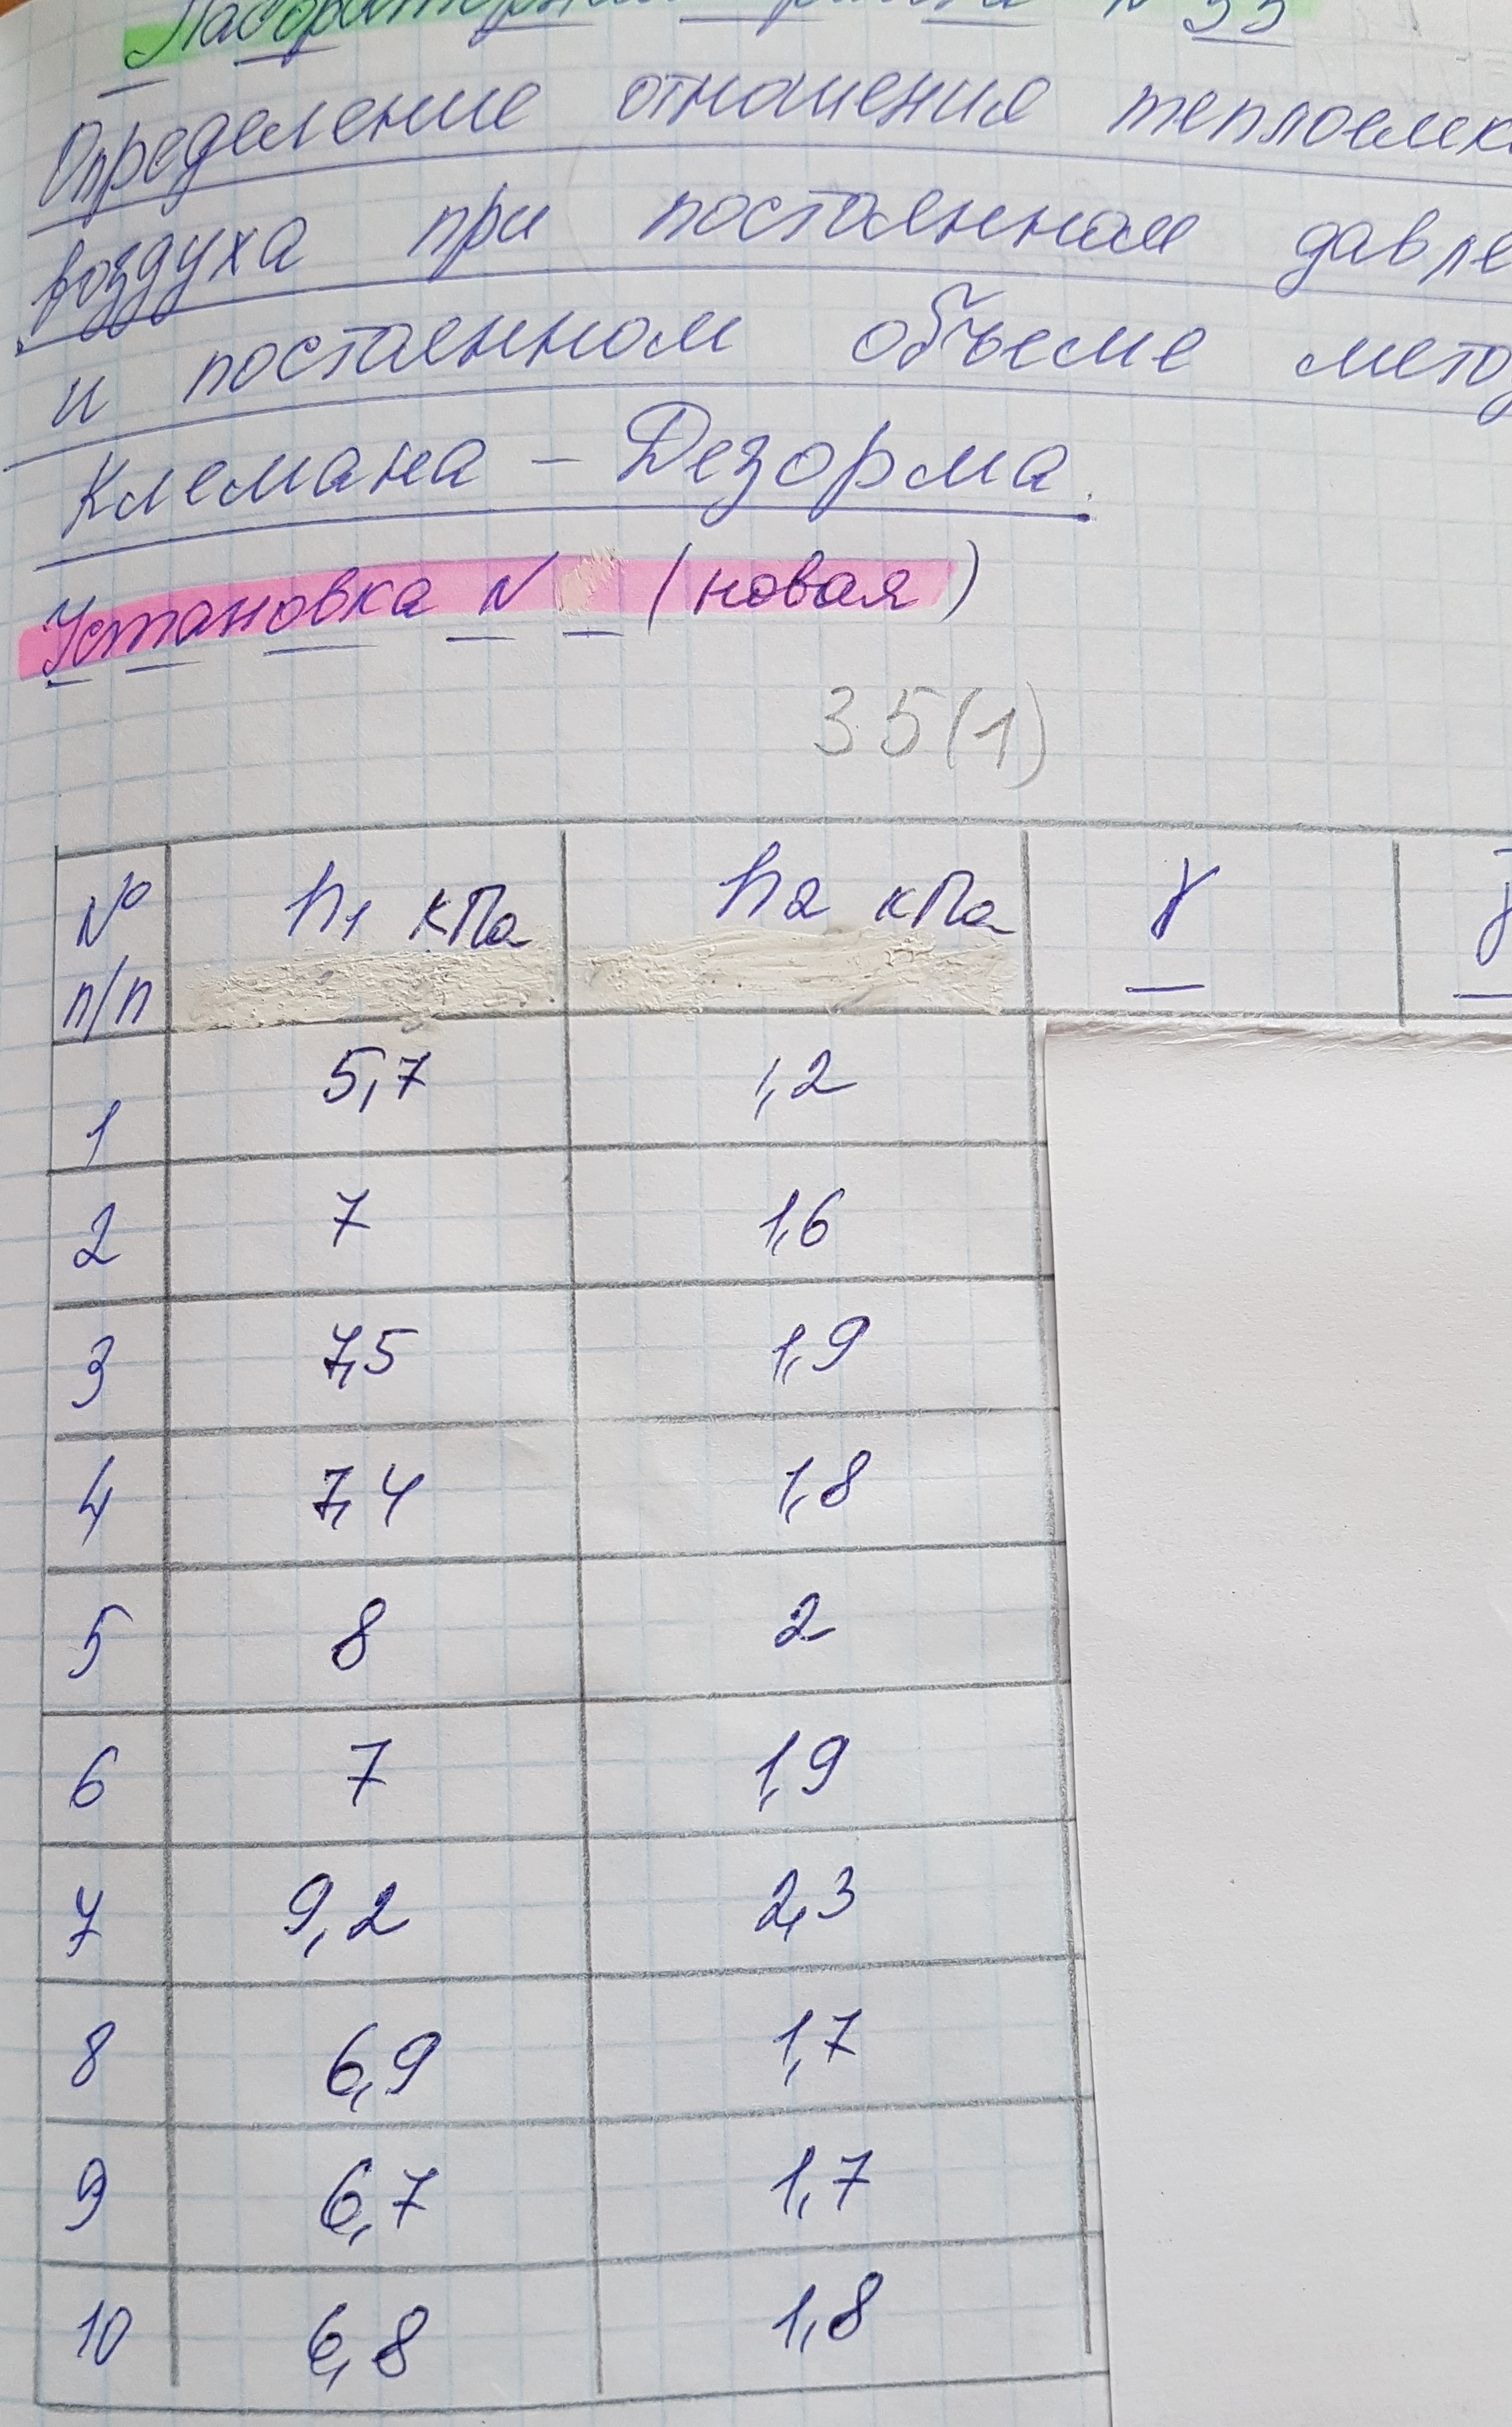 Лабораторная работа № 35
Определение отношения теплоемк
воздуха при постоянном давле
и постоянном объеме мето
Клемана - Дезорма.
Установка № (новая)
35(1)
№ п/п h1 кПа h2 кПа γ
1 5,7 1,2
2 7 1,6
3 7,5 1,9
4 7,4 1,8
5 8 2
6 7 1,9
7 9,2 2,3
8 6,9 1,7
9 6,7 1,7
10 6,8 1,8